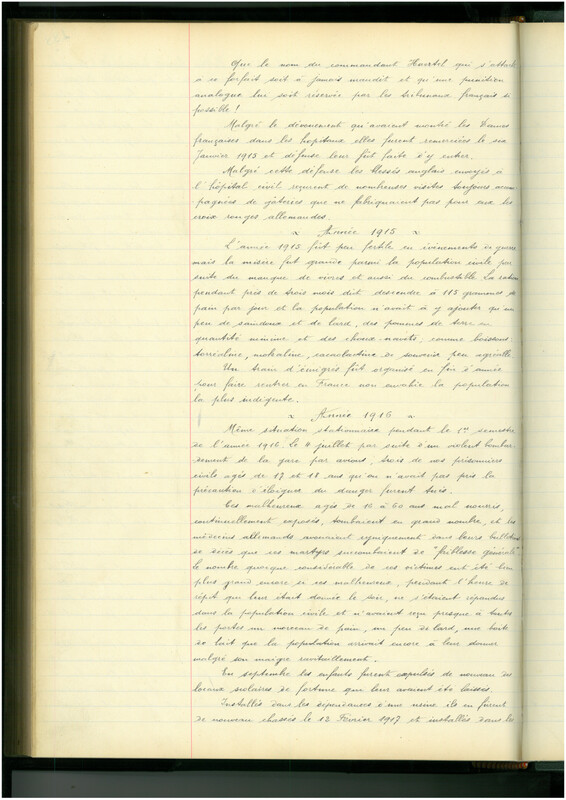 Que le nom du commandant Haertel qui s'attache
à ce forfait soit à jamais maudit et qu'une punition
analogue lui soit réservée par les tribunaux français si
possible !
Malgré le dévouement qu'avaient montré les Dames
françaises dans les hôpitaux elles furent remerciées le 20
Janvier 1915 et défense leur fût faite d'y entrer.
Malgré cette défense les blessés anglais envoyés à
l'hôpital civil reçurent de nombreuses visites toujours accom
pagnées de gâteries que ne fabriquaient pas pour eux les
croix rouges allemandes.
Année 1915
L'année 1915 fût peu fertile en évènements de guerre
mais la misère fut grande parmi la population civile par
suite du manque de vivres et aussi du combustible La ration
pendant près de trois mois dût descendre à 115 grammes de
pain par jour et la population n'avait à y ajouter qu'un
peu de saindoux et de lard, des pommes de terre en
quantité minime et des choux-navets, comme boissons:
torréaline, mokaline, cacaolactine de souvenir peu agréable
Un train d'émigrés fût organisé en fin d'année
pour faire rentrer en France non envahie la population
la plus indigente.
Année 1916
Même situation stationnaire pendant le 1er semestre
de l'année 1916. Le 4 juillet par suite d'un violent bombar
dement de la gare par avions, trois de nos prisonniers
civils agés de 17 et 18 ans qu'on n'avait pas pris la
précaution d'éloigner du danger furent tués.
Ces malheureux agés de 16 à 60 ans mal nourris,
continuellement exposés, tombaient en grand nombre, et les
médecins allemands avouaient cyniquement dans leurs bulletins
de décès que ces martyrs succombaient de "faiblesse générale"
le nombre quoique considérable de ces victimes eut été bien
plus grand encore si ces malheureux, pendant l'heure de
répit qui leur était donnée le soir, ne s'étaient répandus
dans la population civile et n'avaient reçu presque à toutes
les portes un morceau de pain, un peu de lard, une boîte
de lait que la population arrivait encore à leur donner
malgré son maigre ravitaillement.
En septembre les enfants furent expulsés de nouveau des
locaux scolaires de fortune que leur avaient été laissés.
Installés dans les dépendances d'une usine ils en furent
de nouveau chassés le 12 Février 1917 et installés dans les